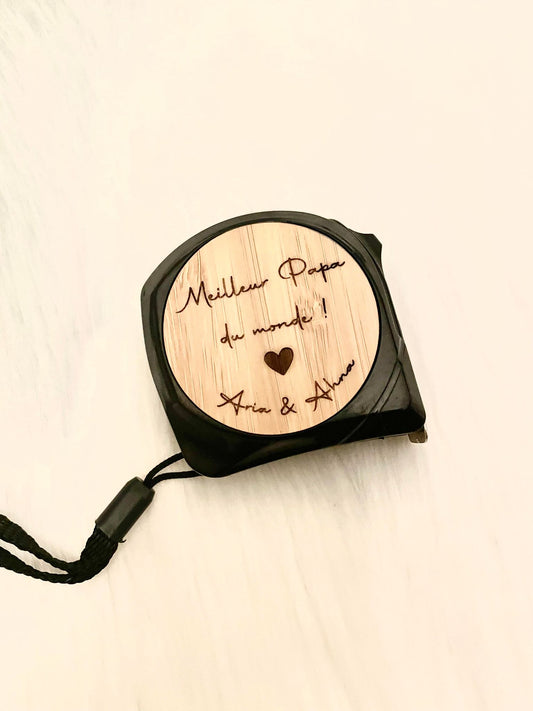 Meilleur Papa
du monde !
Aria & Ahna